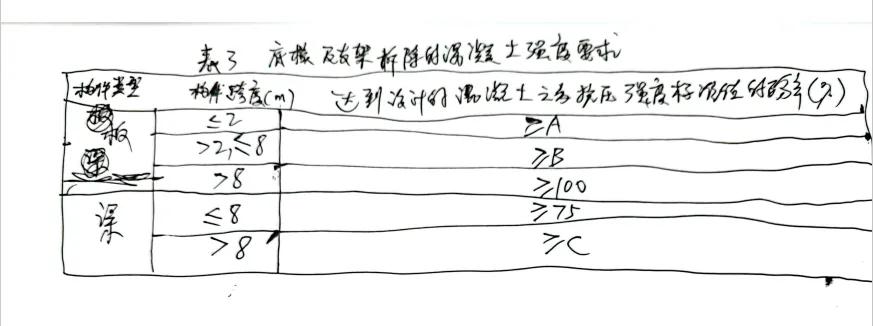 表3 底模及支架拆除的混凝土强度要求
构件类型 构件跨度(m) 达到设计的混凝土立方抗压强度标准值的百分率(%)
板 ≤2 ≥A
>2,≤8 ≥B
>8 ≥100
梁 ≤8 ≥75
>8 ≥C